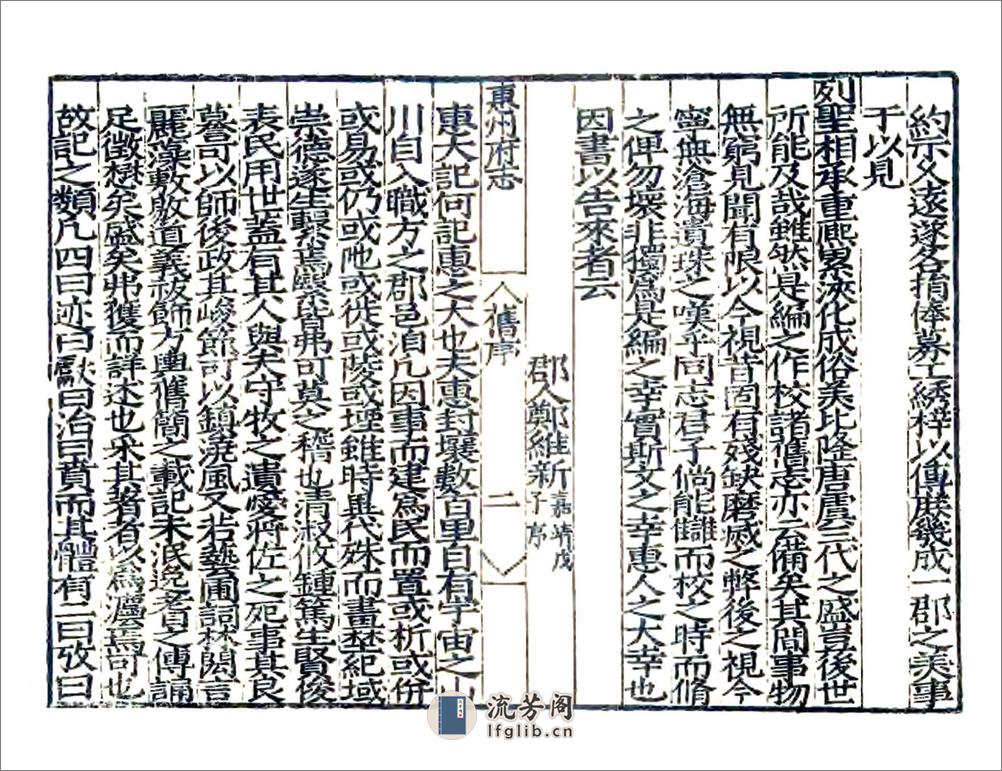 約宗父遠遂各捐俸募工綉梓以傳庶幾成一郡之美事
于以見
列聖相承重熙累洽化成俗美比隆唐虞三代之盛豈後世
所能及哉雖然是編之作校諸舊志亦云備矣其間事物
無窮見聞有限以今視昔固有殘缺磨滅之弊後之視今
寧無滄海遺珠之嘆乎同志君子倘能讎而校之時而脩
之俾勿壞非獨爲是編之幸實斯文之幸惠人之大幸也
因書以告來者云
郡人鄭維新嘉靖戊子序
惠州府志
舊序
二
惠大記何記惠之大也夫惠封壤數百里自有宇宙之山
川自入職方之郡邑洎凡因事而建爲民而置或析或併
或易或仍或阤或徙或陵或堙雖時異代殊而畫埜紀域
崇德遂生轍焉緊皆弗可莫之稽也清淑攸鍾篤生賢俊
表民用世蓋有其人與夫守牧之遺愛將佐之死事其良
謩可以師後政其峻節可以鎮澆風又若藝圃詞林閎言
麗藻敷敭道義祓飾方輿舊簡之載記未泯耆之傳誦
足徵懋矣盛矣弗獲而詳述也采其著者以爲焉可也
故記之類凡四曰迹曰獻曰治曰賁而其體有二曰攷曰
流芳阁
lfglib.cn